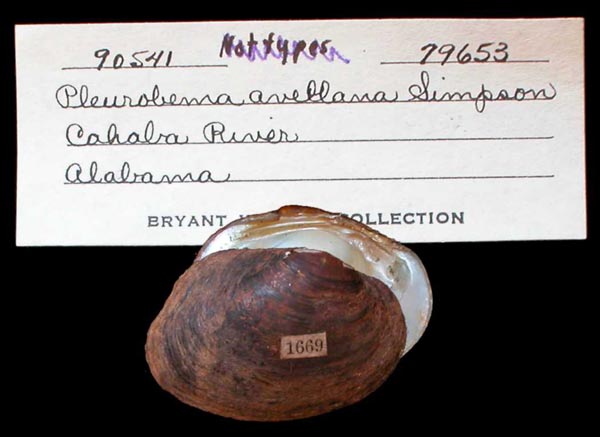 90541 Not types 79653
Pleurobema avellana Simpson
Cahaba River
Alabama
BRYANT COLLECTION
1669